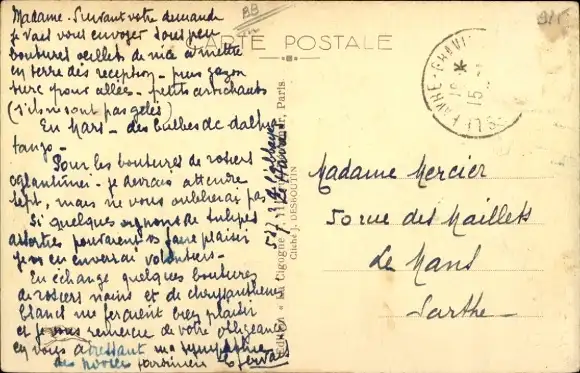 Madame. Suivant votre demande
je vais vous envoyer sous peu
boutures oeillets de nice à mettre
en terre dès reception - puis gazon
turc pour allées - petits artichauts
(s'ils ne sont pas gelés)
En Mars - des bulbes de dalhias
tango -
Pour les boutures de rosiers
eglantiner - je devrais attendre
sept, mais ne vous oublierai pas
Si quelques oignons de tulipes
assorties pouvaient vs faire plaisir
je vs en enverrai volontiers -
En échange quelques boutures
de rosiers nains et de chrysanthème
blanc me feraient bien plaisir
et je vous remercie de votre obligeance
en vous adressant ma sympathie
jardinière
BB
CARTE POSTALE
LE HAVRE
15
Madame Mercier
50 rue des Maillets
Le Mans
Sarthe -
"La Cigogne"
Paris
Cliché J. DESBOUTIN